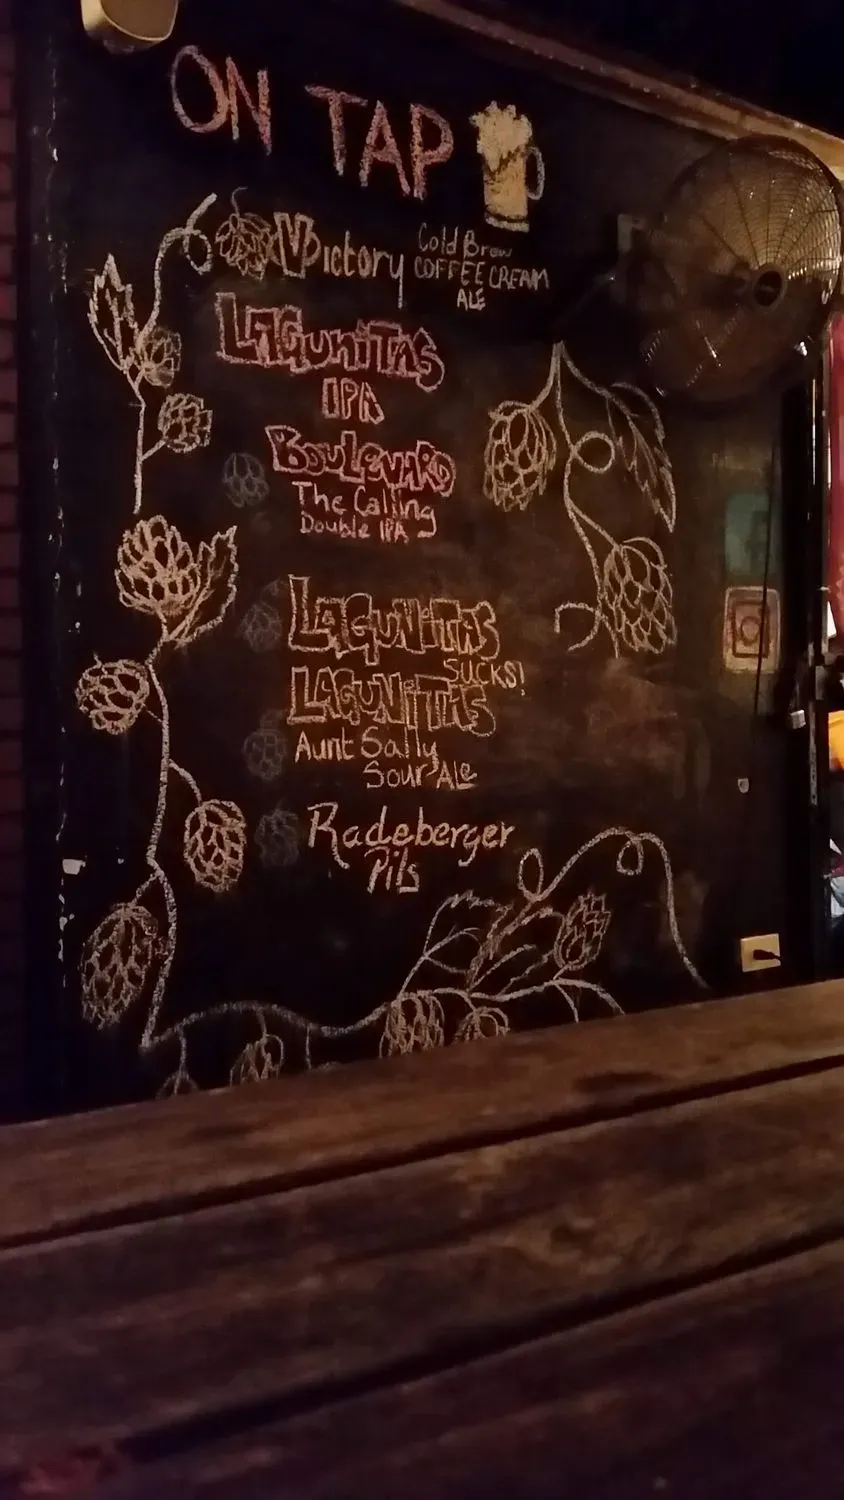 ON TAP
Victory Cold Brew
COFFEE CREAM
ALE
LAGUNITAS
IPA
BOULEVARD
The Calling
Double IPA
LAGUNITAS
SUCKS!
LAGUNITAS
Aunt Sally
Sour Ale
Radeberger
Pils